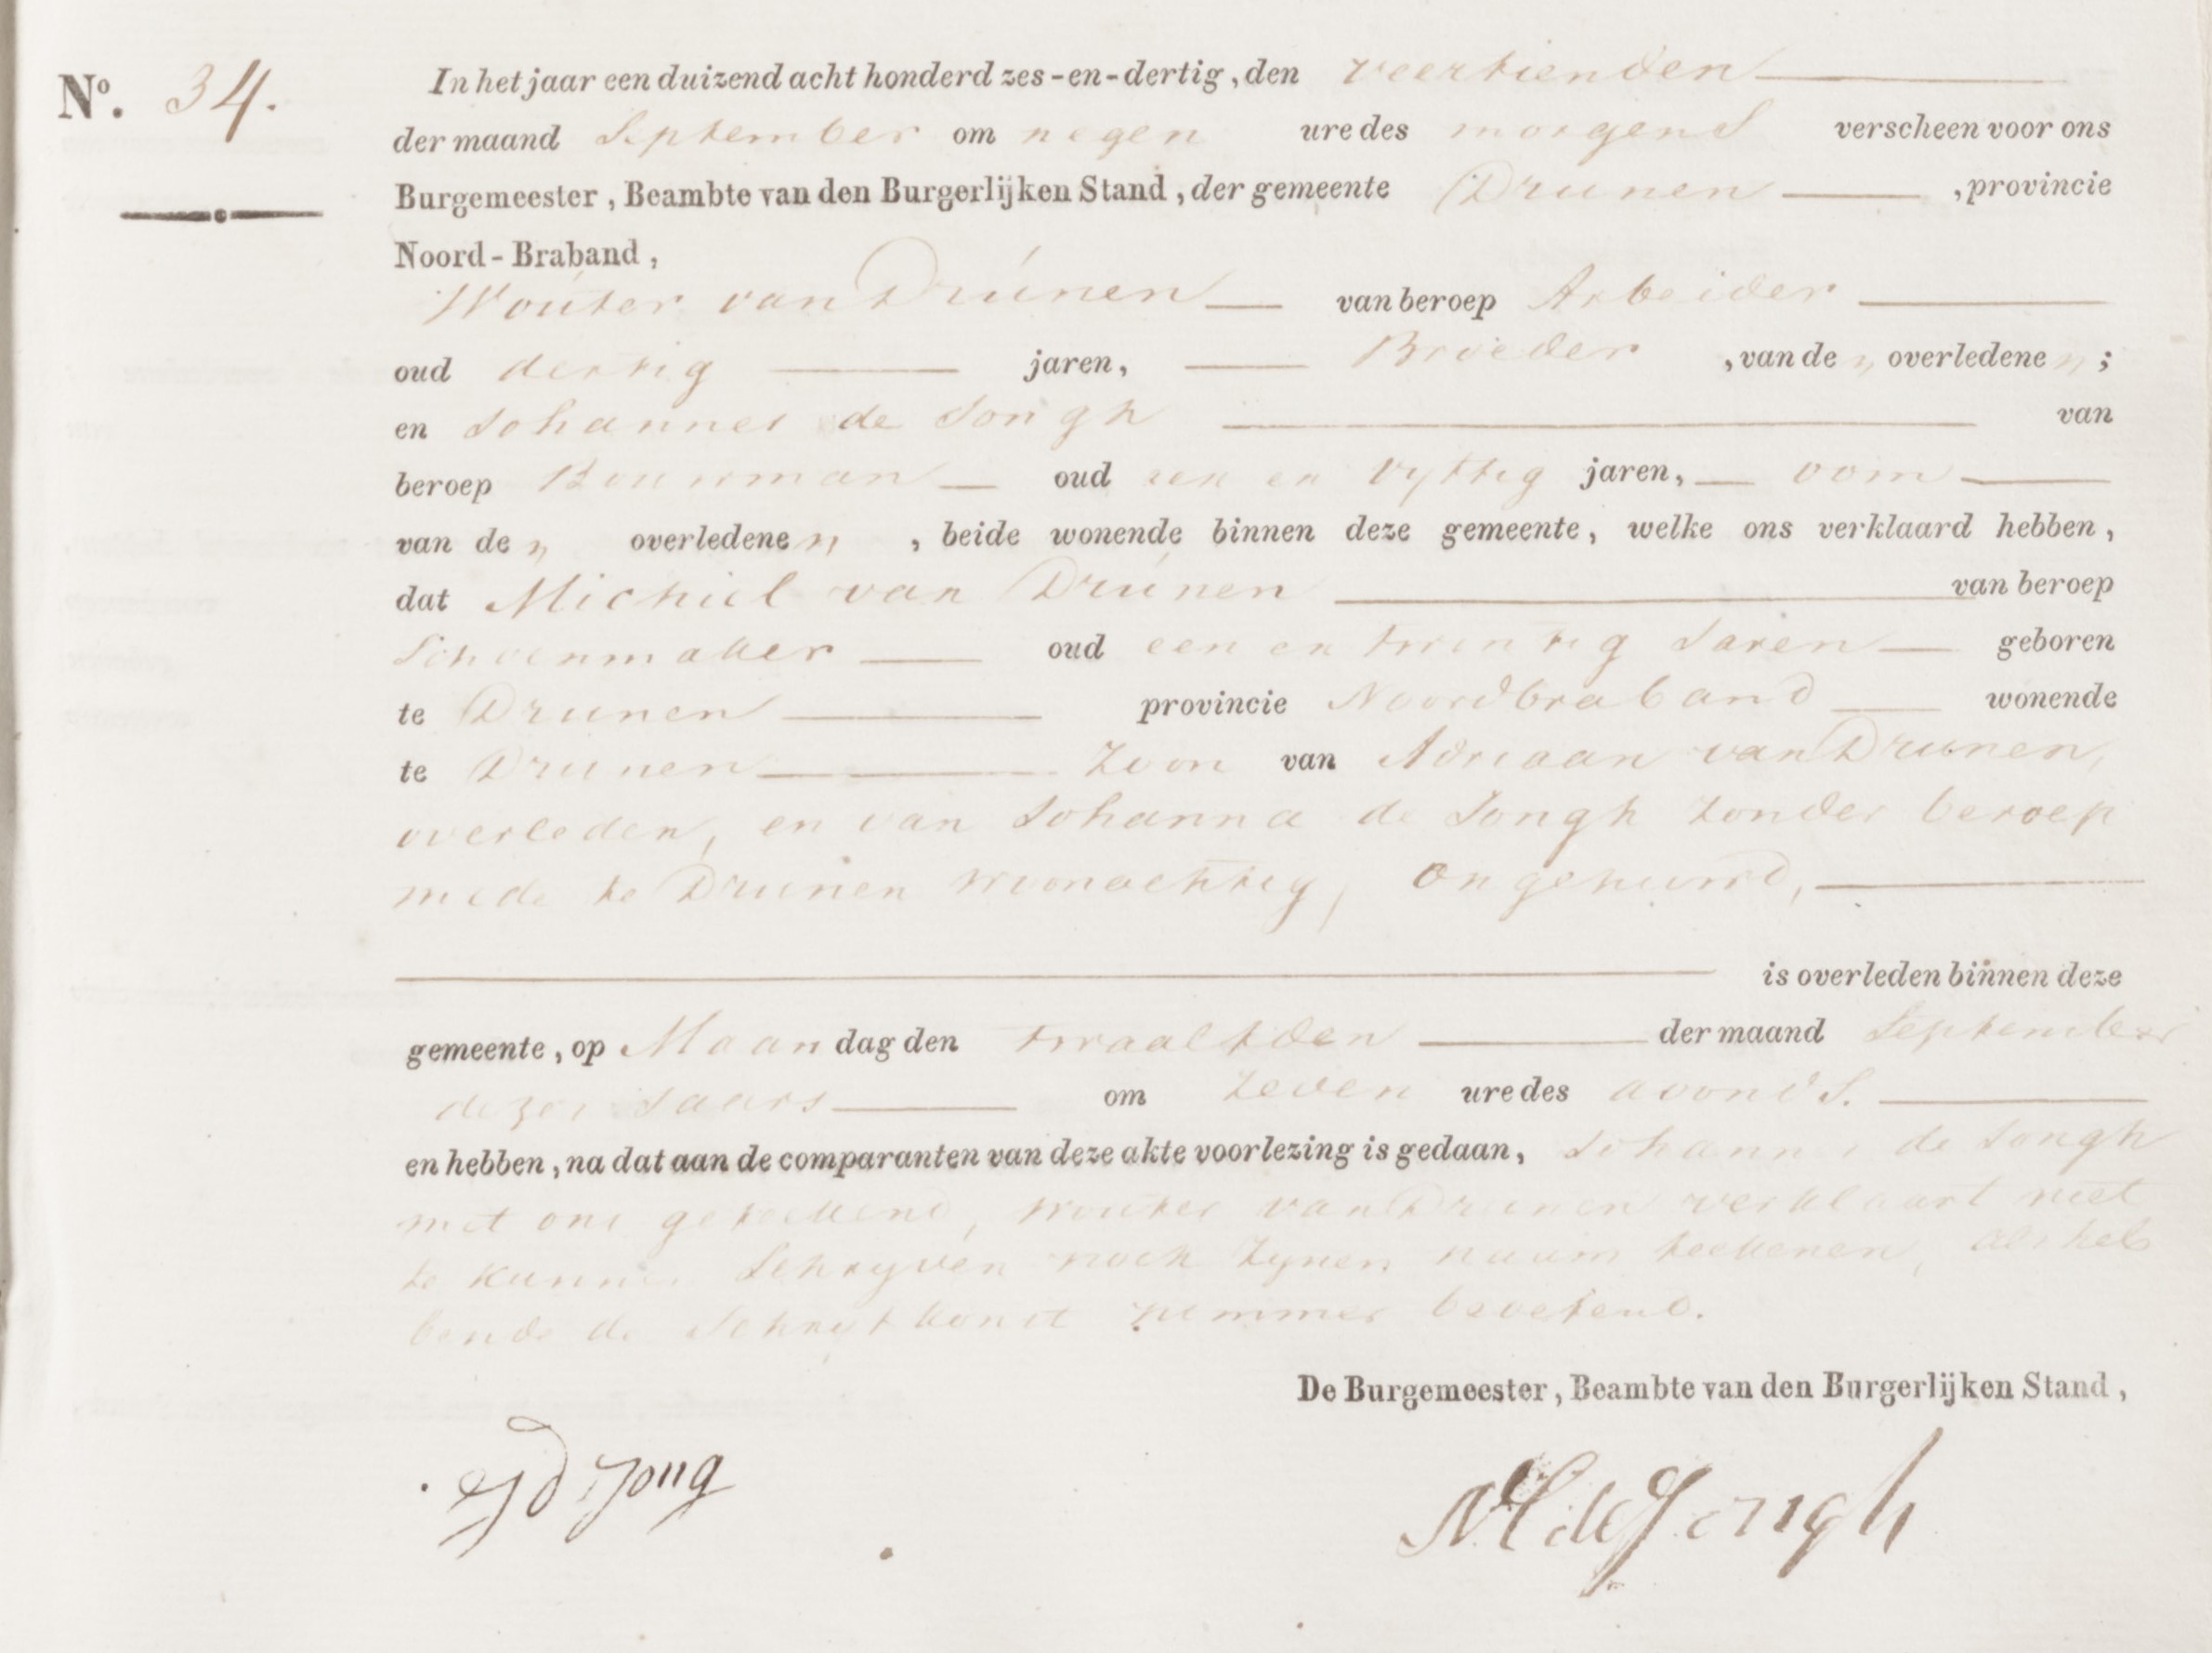 Nº. 34.
In het jaar een duizend acht honderd zes-en-dertig, den veertienden
der maand September om negen ure des morgens verscheen voor ons
Burgemeester, Beambte van den Burgerlijken Stand, der gemeente Drunen, provincie
Noord-Braband,
Wouter van Drúnen van beroep Arbeider
oud dertig jaren, Broeder, van de n overledene n;
en Johannes de Jongh van
beroep Bouwman oud zes en vyftig jaren, oom
van de n overledene n, beide wonende binnen deze gemeente, welke ons verklaard hebben,
dat Michiel van Drúnen van beroep
Schoenmaker oud een en twintig Jaren geboren
te Drunen provincie Noordbraband wonende
te Drunen Zoon van Adriaan van Drunen,
overleden, en van Johanna de Jongh zonder beroep
mede te Drunen woonachtig, ongehuwd,
is overleden binnen deze
gemeente, op Maandag den twaalfden der maand September
dezes Jaars om zeven ure des avonds.
en hebben, na dat aan de comparanten van deze akte voorlezing is gedaan, Johannes de Jongh
met ons geteekend, Wouter van Drunen verklaart niet
te kunnen Schryven noch zynen naam teekenen, als heb
bende de Schryfkonst nimmer beoefend.
De Burgemeester, Beambte van den Burgerlijken Stand,
d Jong
de Jongh